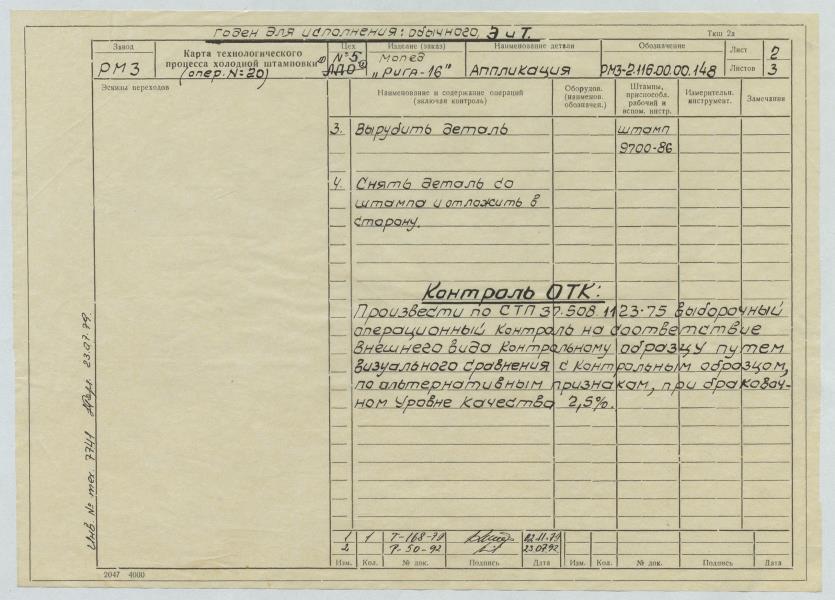 годен для исполнения: обычного, Э и Т.
Ткш 2а
Завод
РМЗ
Карта технологического
процесса холодной штамповки
(опер. №20)
Цех
№5
Изделие (заказ)
Мопед
„Рига-16"
Наименование детали
Аппликация
Обозначение
РМЗ-2.116.00.00.148
Лист 2
Листов 3
Эскизы переходов
Наименование и содержание операций
(включая контроль)
Оборудов.
(наименов.
обозначен.)
Штампы,
приспособл.
рабочий и
вспом. инстр.
Измерительн.
инструмент.
Замечания
3. Вырубить деталь штамп
9700-86
4. Снять деталь со
штампа и отложить в
сторону.
Контроль ОТК:
Произвести по СТП 37.508.1123-75 выборочный
операционный контроль на соответствие
внешнего вида контрольному образцу путем
визуального сравнения с контрольным образцом,
по альтернативным признакам, при браковоч-
ном уровне качества 2,5%.
Инв. № тех. 7741 23.07.79.
1 1 Т-168-79 02.11.79
2 Т-50-92 23.07.92
Изм. Кол. № док. Подпись Дата Изм. Кол. № док. Подпись Дата
2047 4000